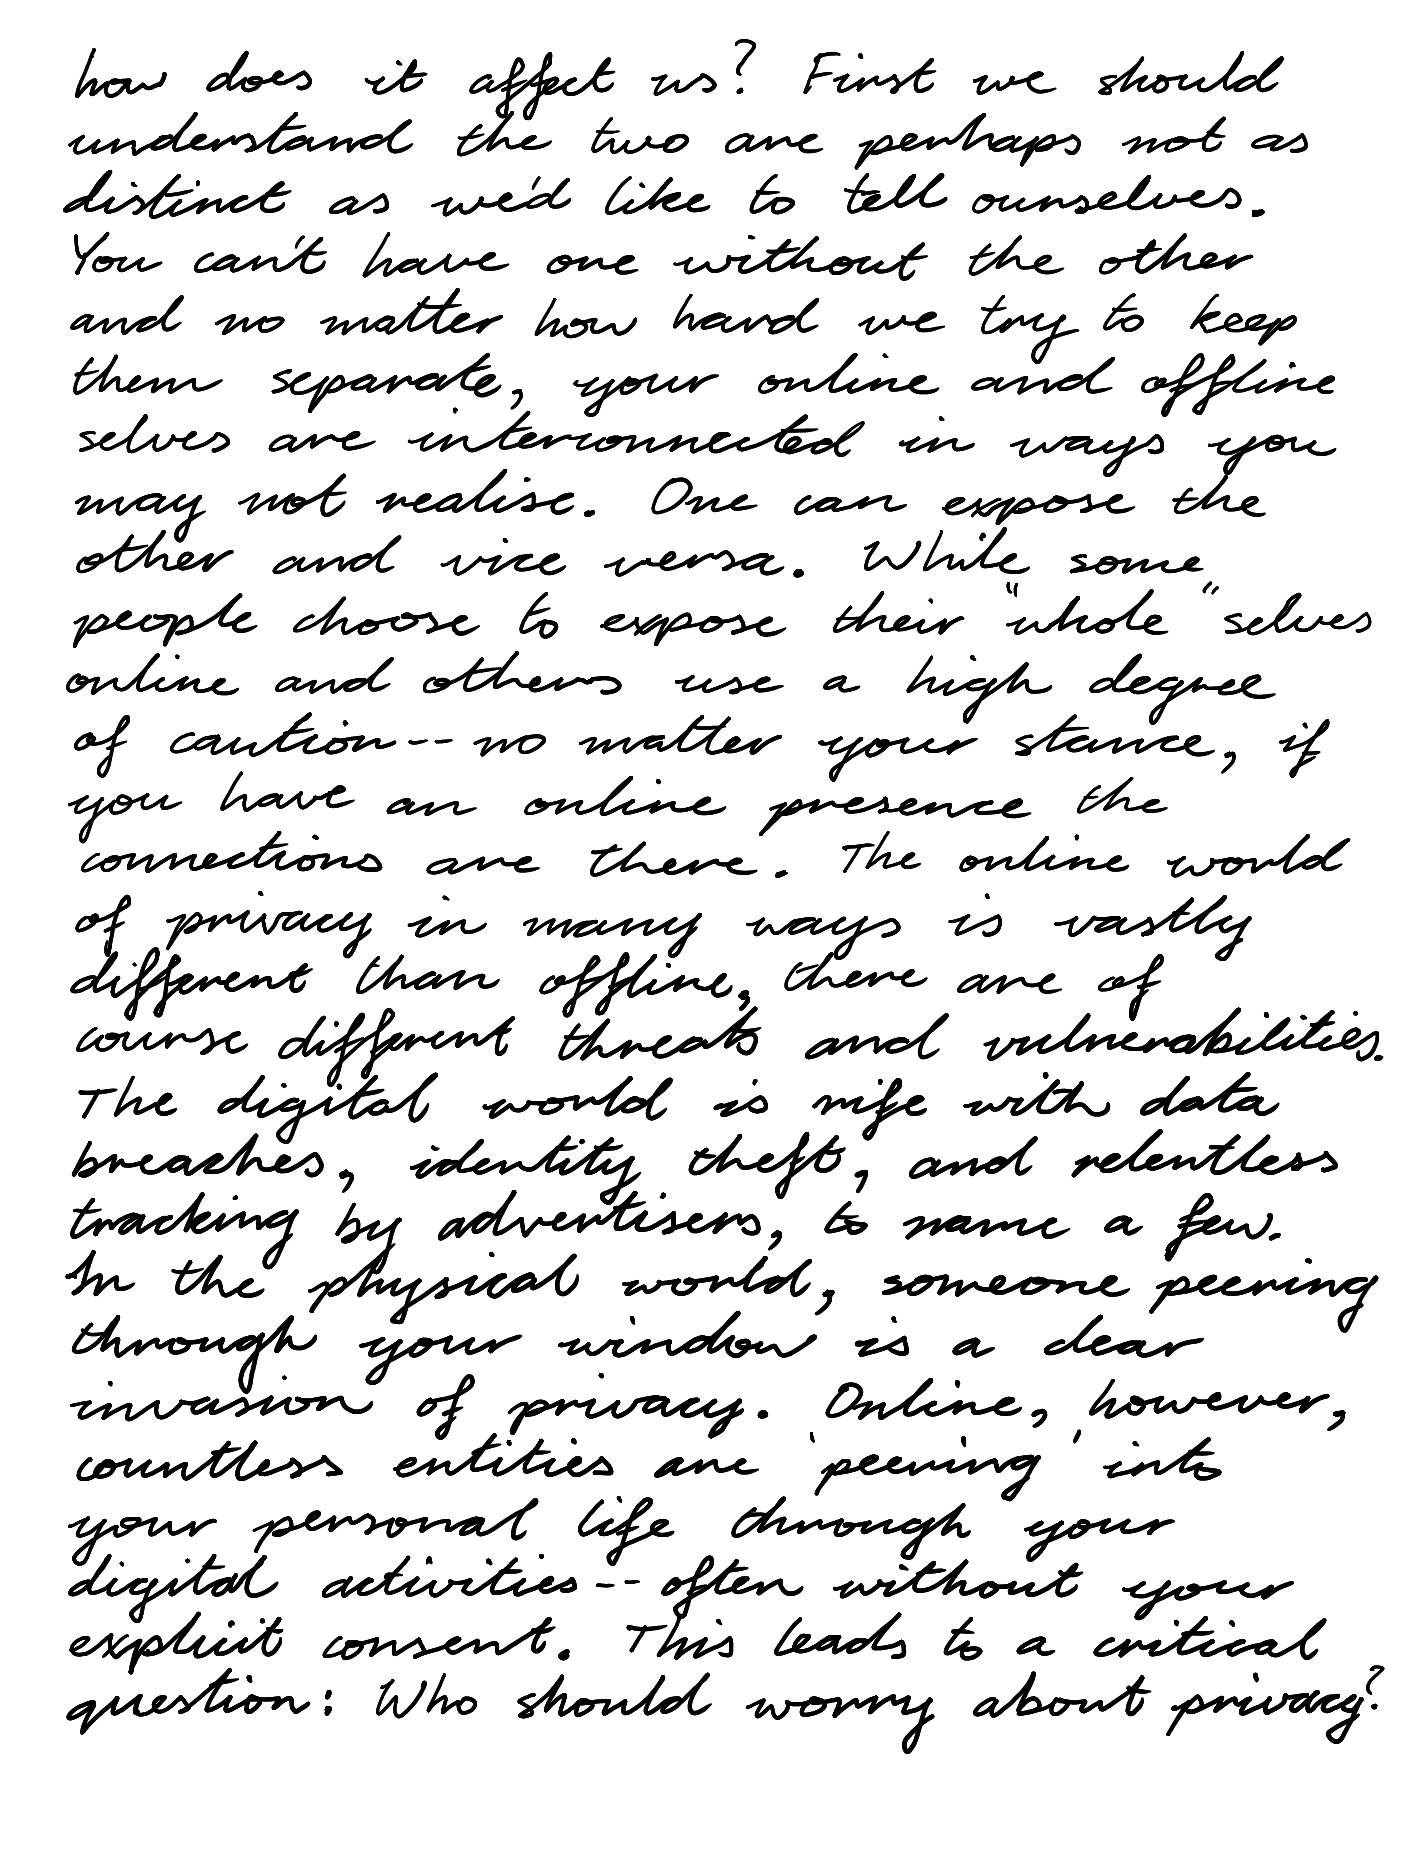 how does it affect us? First we should
understand the two are perhaps not as
distinct as we'd like to tell ourselves.
You can't have one without the other
and no matter how hard we try to keep
them separate, your online and offline
selves are interconnected in ways you
may not realise. One can expose the
other and vice versa. While some
people choose to expose their "whole" selves
online and others use a high degree
of caution--no matter your stance, if
you have an online presence the
connections are there. The online world
of privacy in many ways is vastly
different than offline, there are of
course different threats and vulnerabilities.
The digital world is rife with data
breaches, identity theft, and relentless
tracking by advertisers, to name a few.
In the physical world, someone peering
through your window is a clear
invasion of privacy. Online, however,
countless entities are 'peering' into
your personal life through your
digital activities--often without your
explicit consent. This leads to a critical
question: Who should worry about privacy?